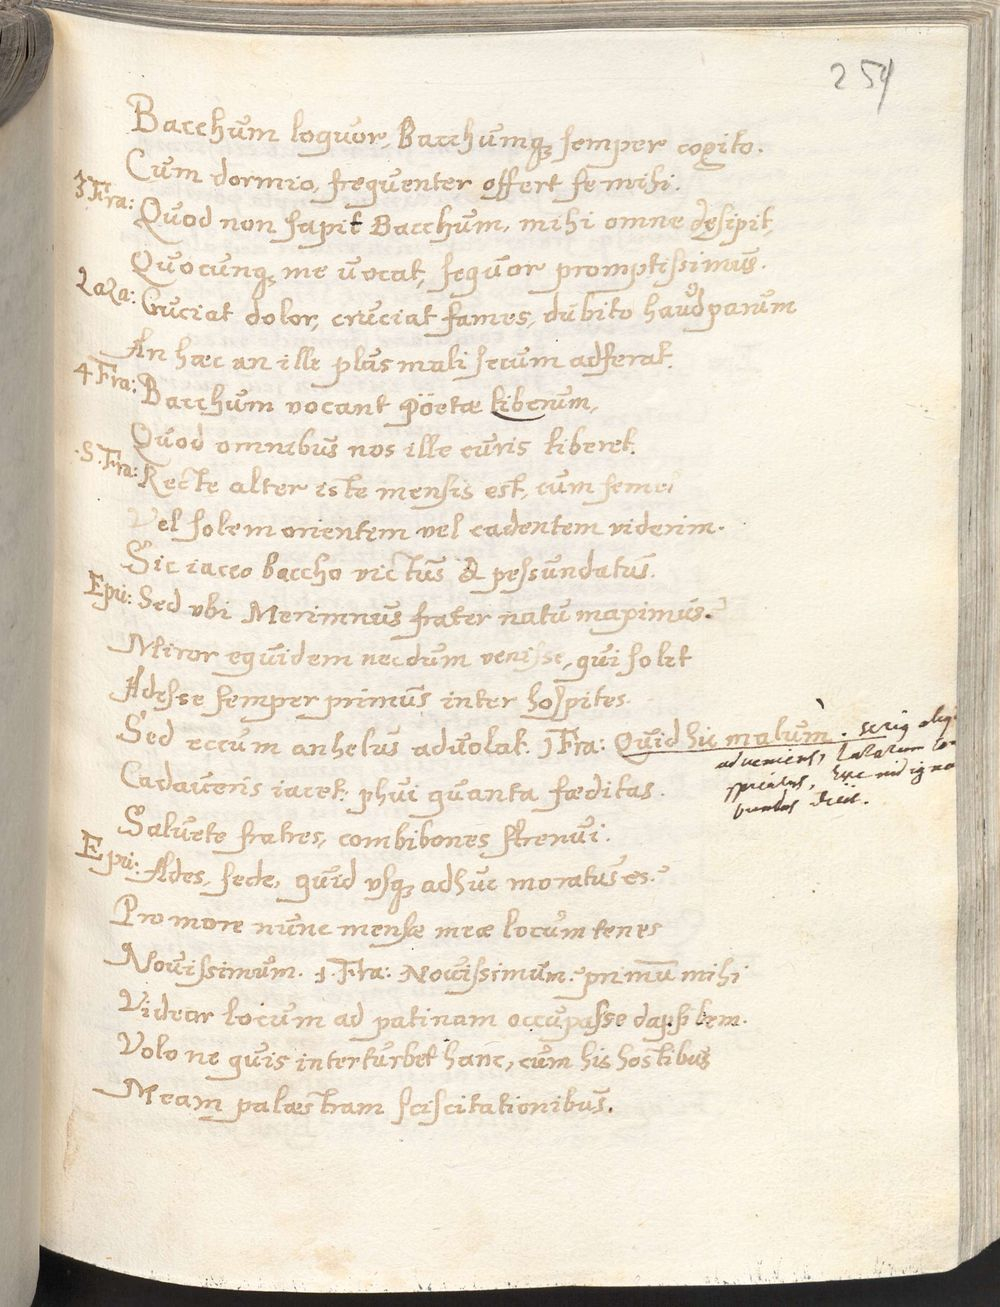 254
Bacchum loquor, Bacchumq₃ semper cogito.
Cum dormio, frequenter offert se mihi.
3. Fra: Quod non sapit Bacchum, mihi omne desipit,
Quocunq₃ me vocat, sequor promptissimus.
Laza: Cruciat dolor, cruciat fames, dubito haud parum
An hæc an ille plus mali secum adferat.
4 Fra: Bacchum vocant Pöetæ liberum,
Quod omnibus nos ille curis liberet.
.5. Fra: Recte alter iste mensis est, cum semel
Vel solem orientem vel cadentem viderim.
Sic iaceo baccho victus & pessundatus.
Epu: Sed vbi Merimnus frater natu maximus?
Miror equidem necdum venisse, qui solet
Adesse semper primus inter hospites.
Sed eccum anhelus advolat. 1 Fra: Quid hic malum.
Cadaveris iacet: phui quanta fæditas.
adveniens, Lazarum
dicit.
Salvete fratres, combibones strenui.
Epu: Ades, sede, quid vsq₃ adhuc moratus es?
Pro more nunc mensæ meæ locum tenes
Novissimum. 1. Fra: Novissimum? primū mihi
Videor locum ad patinam occupasse dapsilem.
Volo ne quis interturbet hanc, cum his hostibus
Meam palæstram sciscitationibus.